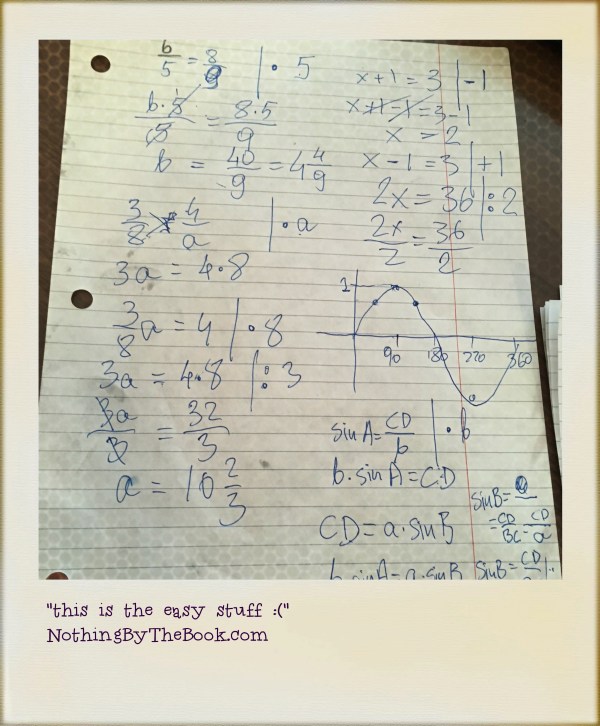 b/5 = 8/9 | · 5
b·5/5 = 8·5/9
b = 40/9 = 4 4/9
3/8 = 4/a | · a
3a = 4·8
3/8 a = 4 | · 8
3a = 4·8 | : 3
3a/3 = 32/3
a = 10 2/3
x+1 = 3 | -1
x+1-1 = 3-1
x = 2
x-1 = 3 | +1
2x = 36 | : 2
2x/2 = 36/2
1
90 180 270 360
sin A = CD/b | · b
b·sin A = CD
CD = a·sin B
sin B =
= CD/BC = CD/a
b·sin A = a·sin B
sin B = CD/
"this is the easy stuff :("
NothingByTheBook.com